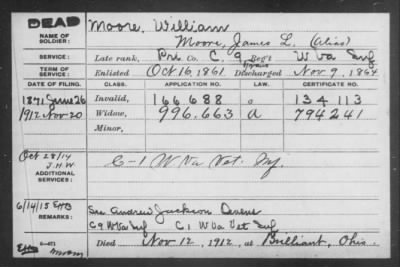 DEAD
NAME OF SOLDIER:
Moore, William
Moore, James L. (Alias)
SERVICE:
Late rank, Pri Co. C. 9, Reg't W Va Inf
Enlisted Oct 16, 1861 Discharged Nov 9, 1864
DATE OF FILING. CLASS. APPLICATION NO. CERTIFICATE NO.
1871 June 26 Invalid, 166688 134113
1912 Nov 20 Widow, 996.663 a 794241
Minor,
Oct 28/14
J.H.W.
ADDITIONAL SERVICES:
C-1 W Va Vet. Inf.
6/14/15
REMARKS:
See Andrew Jackson
C 9 W Va Inf C 1 W Va Vet Inf
Died Nov 12, 1912, at Brilliant, Ohio.